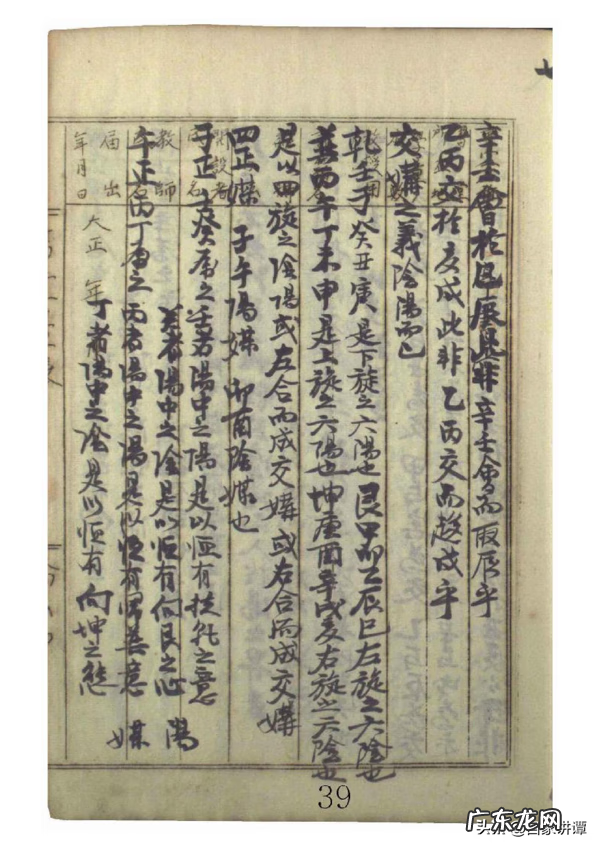 辛壬會於巳辰此非辛壬會而聚辰乎
乙丙交於戌此非乙丙交而趍戌乎
交媾之義陰陽而已
乾壬子癸丑庚是下旋之六陽也艮甲卯乙辰巳左旋之六陰也
巽丙午丁未申是上旋之六陽也坤庚酉辛戌亥右旋之六陰也
是以四旋之陰陽或左合而成交媾或右合而成交媾
四正媒 子午陽媒 卯酉陰媒也
子正 壬癸屬之 壬者陽中之陽是以恒有扶乾之意
癸者陽中之陰是以恒有向艮之心 陽
午正 丙丁屬之 丙者陽中之陽是以恒有帶巽意 媒
丁者陽中之陰是以恒有向坤之態
開設者
教師
届出
年月日
大正 年
39
头条 @百家讲谭
广东龙网